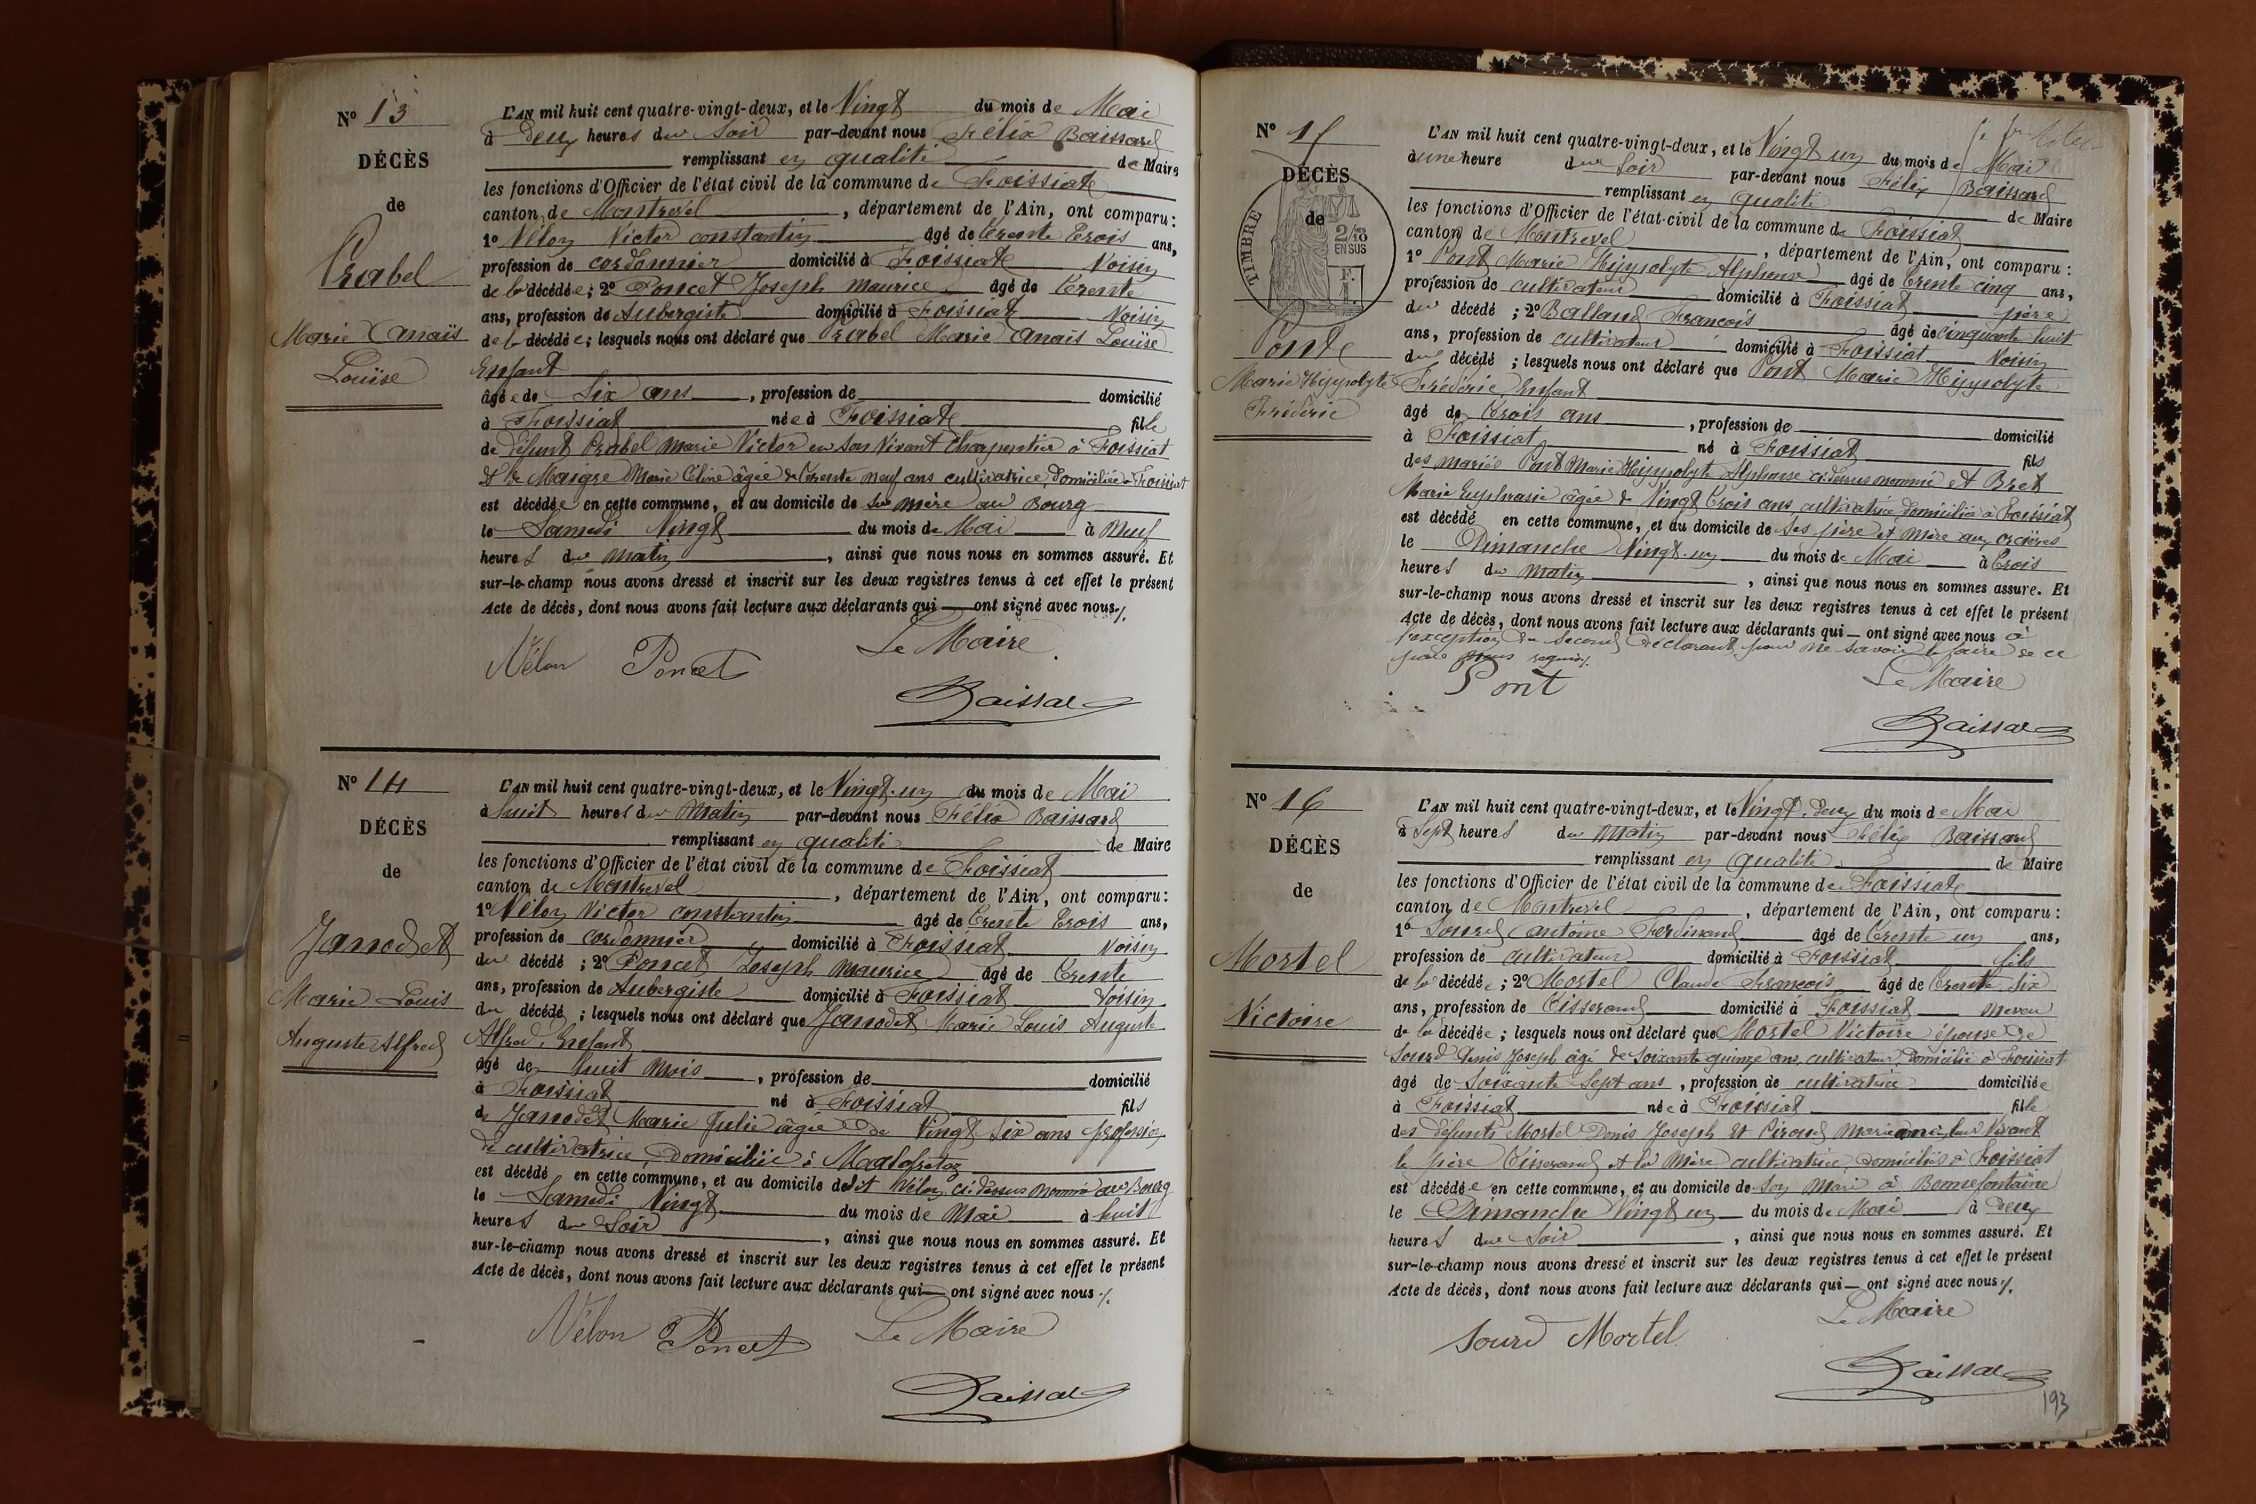 Nº 13
DÉCÈS
de
Prabel
Marie Anaïs
Louise
L'AN mil huit cent quatre-vingt-deux, et le Vingt du mois de Mai
à Deux heures du Soir par-devant nous Félix Baissard
remplissant en qualité de Maire
les fonctions d'Officier de l'état civil de la commune de Foissiat
canton de Montrevel, département de l'Ain, ont comparu :
1º Vélon Victor constantin âgé de trente trois ans,
profession de cordonnier domicilié à Foissiat Voisin
de la décédée ; 2º Poncet Joseph Maurice âgé de trente
ans, profession de Aubergiste domicilié à Foissiat Voisin
de la décédée ; lesquels nous ont déclaré que Prabel Marie Anaïs Louise
Enfant
âgée de Six ans, profession de domicilié
à Foissiat née à Foissiat fille
de défunt Prabel Marie Victor en son Vivant Charpentier à Foissiat
et de Maigre Marie Céline âgée de trente neuf ans cultivatrice, domiciliée à Foissiat
est décédée en cette commune, et au domicile de sa mère au Bourg
le Samedi Vingt du mois de Mai à Neuf
heures du matin, ainsi que nous nous en sommes assuré. Et
sur-le-champ nous avons dressé et inscrit sur les deux registres tenus à cet effet le présent
Acte de décès, dont nous avons fait lecture aux déclarants qui — ont signé avec nous ./.
Vélon Poncet Le Maire
Baissard
Nº 14
DÉCÈS
de
Janodet
Marie Louis
Auguste Alfred
L'AN mil huit cent quatre-vingt-deux, et le Vingt-un du mois de Mai
à huit heures du Matin par-devant nous Félix Baissard
remplissant en qualité de Maire
les fonctions d'Officier de l'état civil de la commune de Foissiat
canton de Montrevel, département de l'Ain, ont comparu :
1º Vélon Victor constantin âgé de trente trois ans,
profession de cordonnier domicilié à Foissiat Voisin
du décédé ; 2º Poncet Joseph Maurice âgé de trente
ans, profession de Aubergiste domicilié à Foissiat Voisin
du décédé ; lesquels nous ont déclaré que Janodet Marie Louis Auguste
Alfred, Enfant
âgé de huit mois, profession de domicilié
à Foissiat né à Foissiat fils
de Janodet Marie Julie âgée de Vingt Six ans profession
de cultivatrice, domiciliée à Malafretaz
est décédé en cette commune, et au domicile de dit Vélon, ci-dessus nommé au Bourg
le Samedi Vingt du mois de Mai à huit
heures du Soir, ainsi que nous nous en sommes assuré. Et
sur-le-champ nous avons dressé et inscrit sur les deux registres tenus à cet effet le présent
Acte de décès, dont nous avons fait lecture aux déclarants qui — ont signé avec nous ./.
Vélon Poncet Le Maire
Baissard
Nº 15
DÉCÈS
de
TIMBRE
2/10
EN SUS
Pont
Marie Hippolyte
Frédéric
L'AN mil huit cent quatre-vingt-deux, et le Vingt un du mois de Mai
à une heure du Soir par-devant nous Félix Baissard
remplissant en qualité de Maire
les fonctions d'Officier de l'état-civil de la commune de Foissiat
canton de Montrevel, département de l'Ain, ont comparu :
1º Pont Marie Hippolyte Alphonse âgé de trente cinq ans,
profession de cultivateur domicilié à Foissiat père
du décédé ; 2º Balland François âgé de cinquante huit
ans, profession de cultivateur domicilié à Foissiat Voisin
du décédé ; lesquels nous ont déclaré que Pont Marie Hippolyte
Frédéric Enfant
âgé de trois ans, profession de domicilié
à Foissiat né à Foissiat fils
des mariés Pont Marie Hippolyte Alphonse ci-dessus nommé et Bret
Marie Euphrasie âgée de Vingt trois ans, cultivatrice domiciliée à Foissiat
est décédé en cette commune, et au domicile de ses père et mère aux
le Dimanche Vingt-un du mois de Mai à trois
heures du Matin, ainsi que nous nous en sommes assuré. Et
sur-le-champ nous avons dressé et inscrit sur les deux registres tenus à cet effet le présent
Acte de décès, dont nous avons fait lecture aux déclarants qui — ont signé avec nous à
l'exception du second déclarant pour ne savoir le faire de ce
par nous requis ./.
Pont Le Maire
Baissard
Nº 16
DÉCÈS
de
Mortel
Victoire
L'AN mil huit cent quatre-vingt-deux, et le Vingt-Deux du mois de Mai
à Sept heures du Matin par-devant nous Félix Baissard
remplissant en qualité de Maire
les fonctions d'Officier de l'état civil de la commune de Foissiat
canton de Montrevel, département de l'Ain, ont comparu :
1º Sourd Antoine Ferdinand âgé de trente un ans,
profession de cultivateur domicilié à Foissiat fils
de la décédée ; 2º Mortel Claude François âgé de trente Six
ans, profession de Tisserand domicilié à Foissiat neveu
de la décédée ; lesquels nous ont déclaré que Mortel Victoire épouse de
Sourd Denis Joseph âgé de soixante quinze ans, cultivateur, domicilié à Foissiat
âgé de soixante Sept ans, profession de cultivatrice domiciliée
à Foissiat née à Foissiat fille
des défunts Mortel Denis Joseph et Piroud Marie anne, leur Vivant
le père Tisserand et la mère cultivatrice, domiciliés à Foissiat
est décédée en cette commune, et au domicile de son Mari à Bonnefontaine
le Dimanche Vingt un du mois de Mai à Deux
heures du Soir, ainsi que nous nous en sommes assuré. Et
sur-le-champ nous avons dressé et inscrit sur les deux registres tenus à cet effet le présent
Acte de décès, dont nous avons fait lecture aux déclarants qui — ont signé avec nous ./.
Sourd Mortel Le Maire
Baissard
193